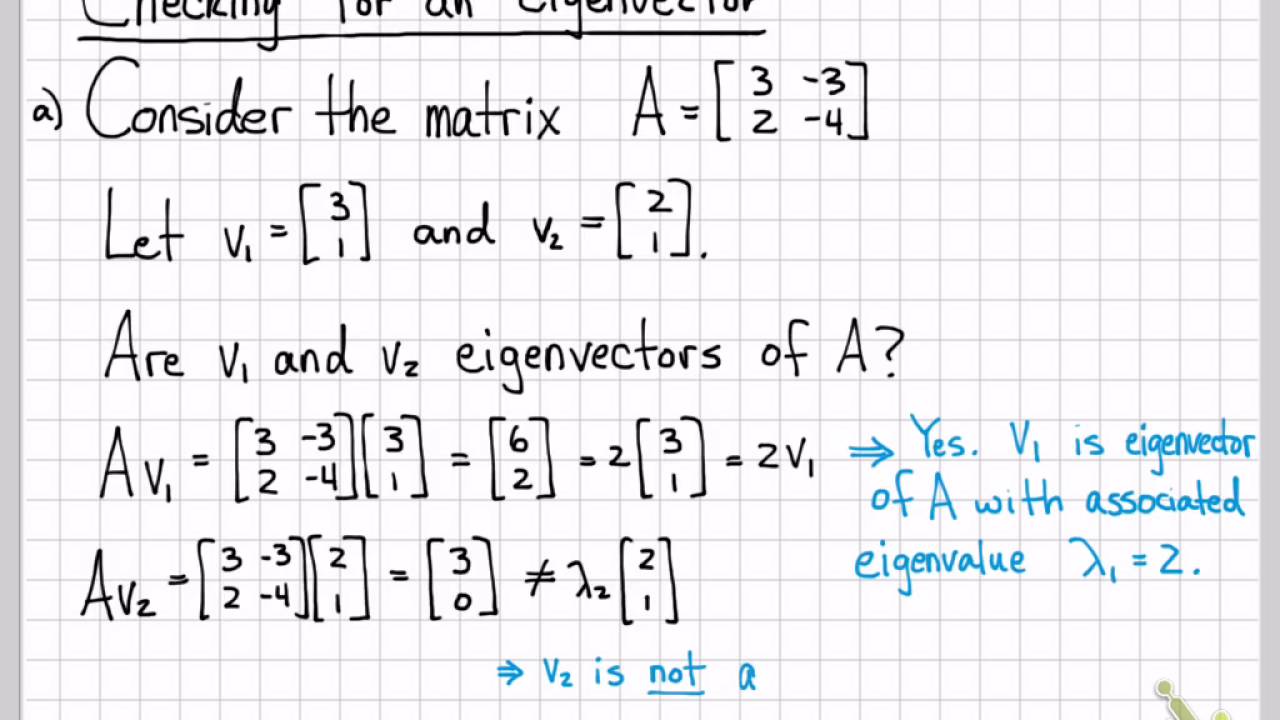 Checking for an Eigenvector
a) Consider the matrix A = [3 -3; 2 -4]
Let v₁ = [3; 1] and v₂ = [2; 1].
Are v₁ and v₂ eigenvectors of A?
Av₁ = [3 -3; 2 -4][3; 1] = [6; 2] = 2[3; 1] = 2v₁ ⇒ Yes. v₁ is eigenvector
of A with associated
eigenvalue λ₁ = 2.
Av₂ = [3 -3; 2 -4][2; 1] = [3; 0] ≠ λ₂[2; 1]
⇒ v₂ is not a